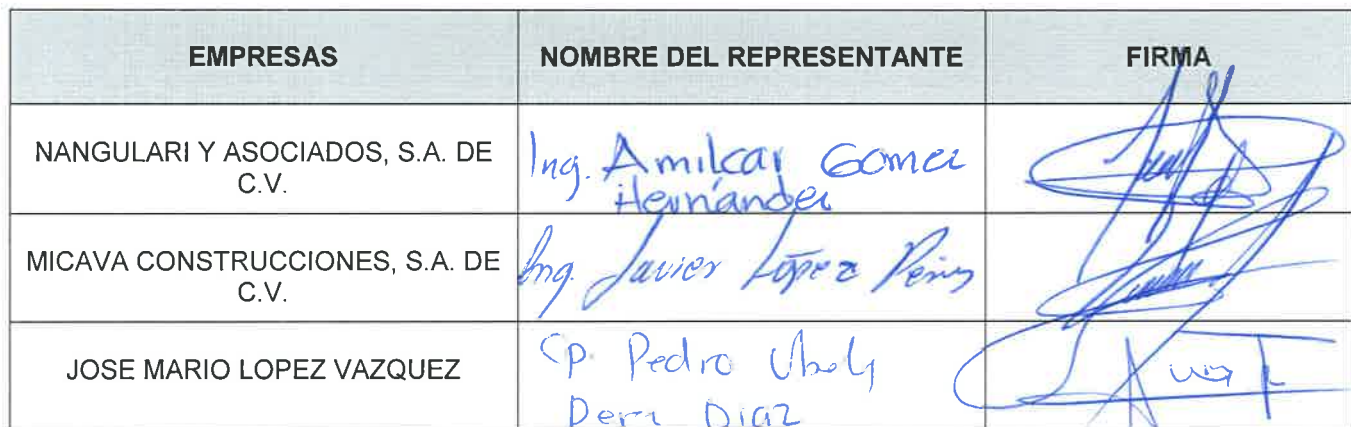 EMPRESAS NOMBRE DEL REPRESENTANTE FIRMA
NANGULARI Y ASOCIADOS, S.A. DE
C.V.
Ing. Amilcar Gomez
Hernández
MICAVA CONSTRUCCIONES, S.A. DE
C.V.
Ing. Javier López
JOSE MARIO LOPEZ VAZQUEZ
CP. Pedro
Diaz